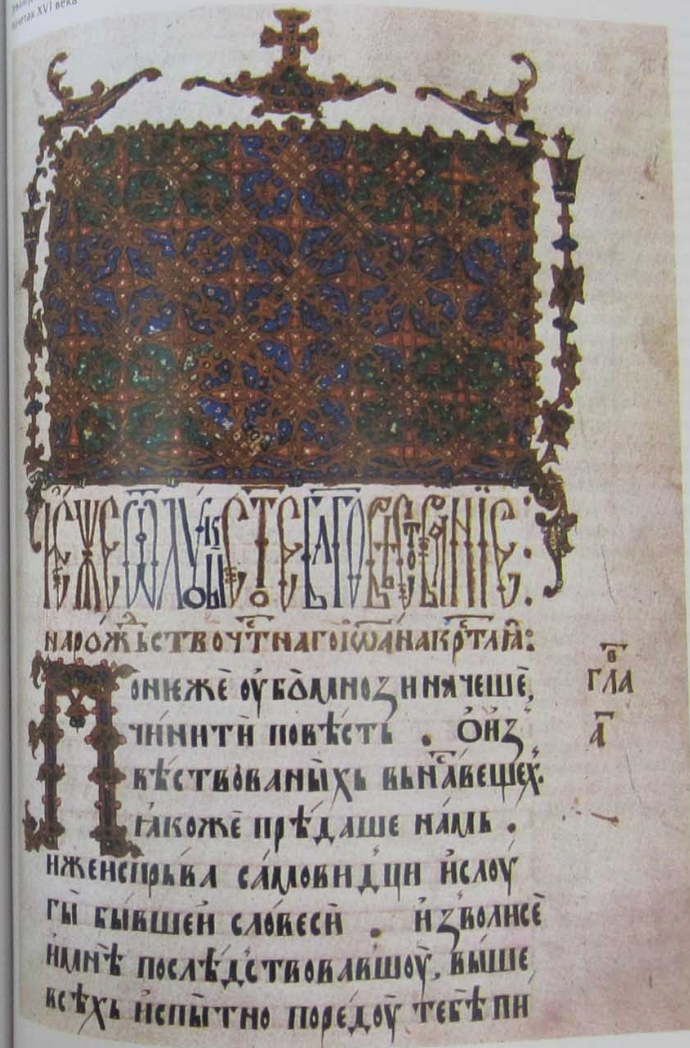 четах XVI века
И́ЕЖЕ Ѿ ЛꙊКЫ С͠ТЕ БЛ͠ГОВѢСТВОВАНЇЕ:
на рожⷣьство чⷭ҇тнаго іѡана крⷭ҇тлꙗ:
Понѥжѐ оу҆бо̀ мноѕи начешѐ,
чи́нити по́вѣсть . Ѻ и҆з
вѣствованы́хь вь на́сⷭ вещехⷯ:
ꙗкожѐ прѣ́даше на́мь .
иже испрьва са́мови́дци и҆ слоу́
гы̀ бы́вшеи сло́веси̏ . и҆зволисѐ
и҆ мнѣ̀ послѣ́дствова́вшоу̀, вы́ше
всѣ́хь и҆спы́тно поре́доу тебѣ̀ пи
в҃
гл҃а
а҃